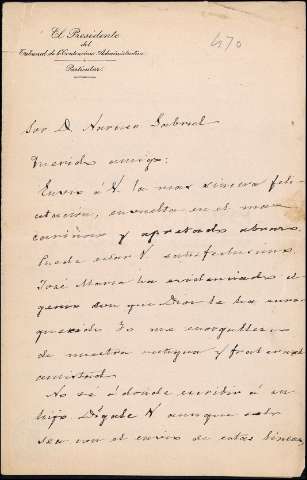 El Presidente
del
Tribunal de lo Contencioso Administrativo
Particular
470
Sor D. Gabriel
Querido amigo:
Envio á V. la mas sincera feli-
citacion, envuelta en el mas
cariñoso y apretado abrazo.
Puede estar V satisfechisimo.
José Maria ha evidenciado el
genio con que Dios le ha enri-
quecido. Yo me enorgullezco
de nuestra antigua y fraternal
amistad.
No se á donde escribir á su
hijo Dígale V aunque solo
sea con el envio de estas lineas,